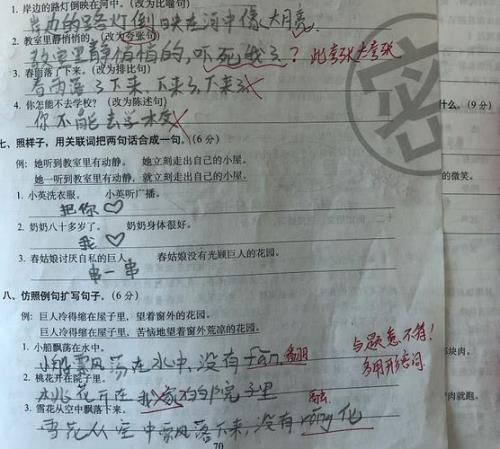 1. 岸边的路灯倒映在河中。(改为比喻句)
岸边的路灯倒映在河中像大月亮.
2. 教室里静悄悄的。(改为夸张句)
教室里静悄悄的,吓死我了? 此夸张太夸张
3. 春雨落了下来。(改为排比句)
春雨落了下来、下来了、下来了
4. 你怎能不去学校?(改为陈述句)
你不能去学
什么。(9分)
密
七、照样子,用关联词把两句话合成一句。(6分)
例: 她听到教室里有动静。 她立刻走出自己的小屋。
的微笑。
她一听到教室里有动静, 就立刻走出自己的小屋。
1. 小英洗衣服。 小英听广播。
把你♡
2. 奶奶八十多岁了。 奶奶身体很好。
我♡
3. 春姑娘讨厌自私的巨人。 春姑娘没有光顾巨人的花园。
串一串
八、仿照例句扩写句子。(6分)
例: 巨人冷得缩在屋子里, 望着窗外的花园。
巨人冷得缩在屋子里, 苦恼地望着窗外荒凉的花园。
1. 小船飘荡在水中。
小船飘荡在水中,没有fān. 翻
与题意不符!
多用形容词
块肉。
2. 桃花开在院子里。
桃花开在我家的院子里
肉就跑。
3. 雪花从空中飘落下来。
雪花从空中飘落下来,没有róng化
融
70